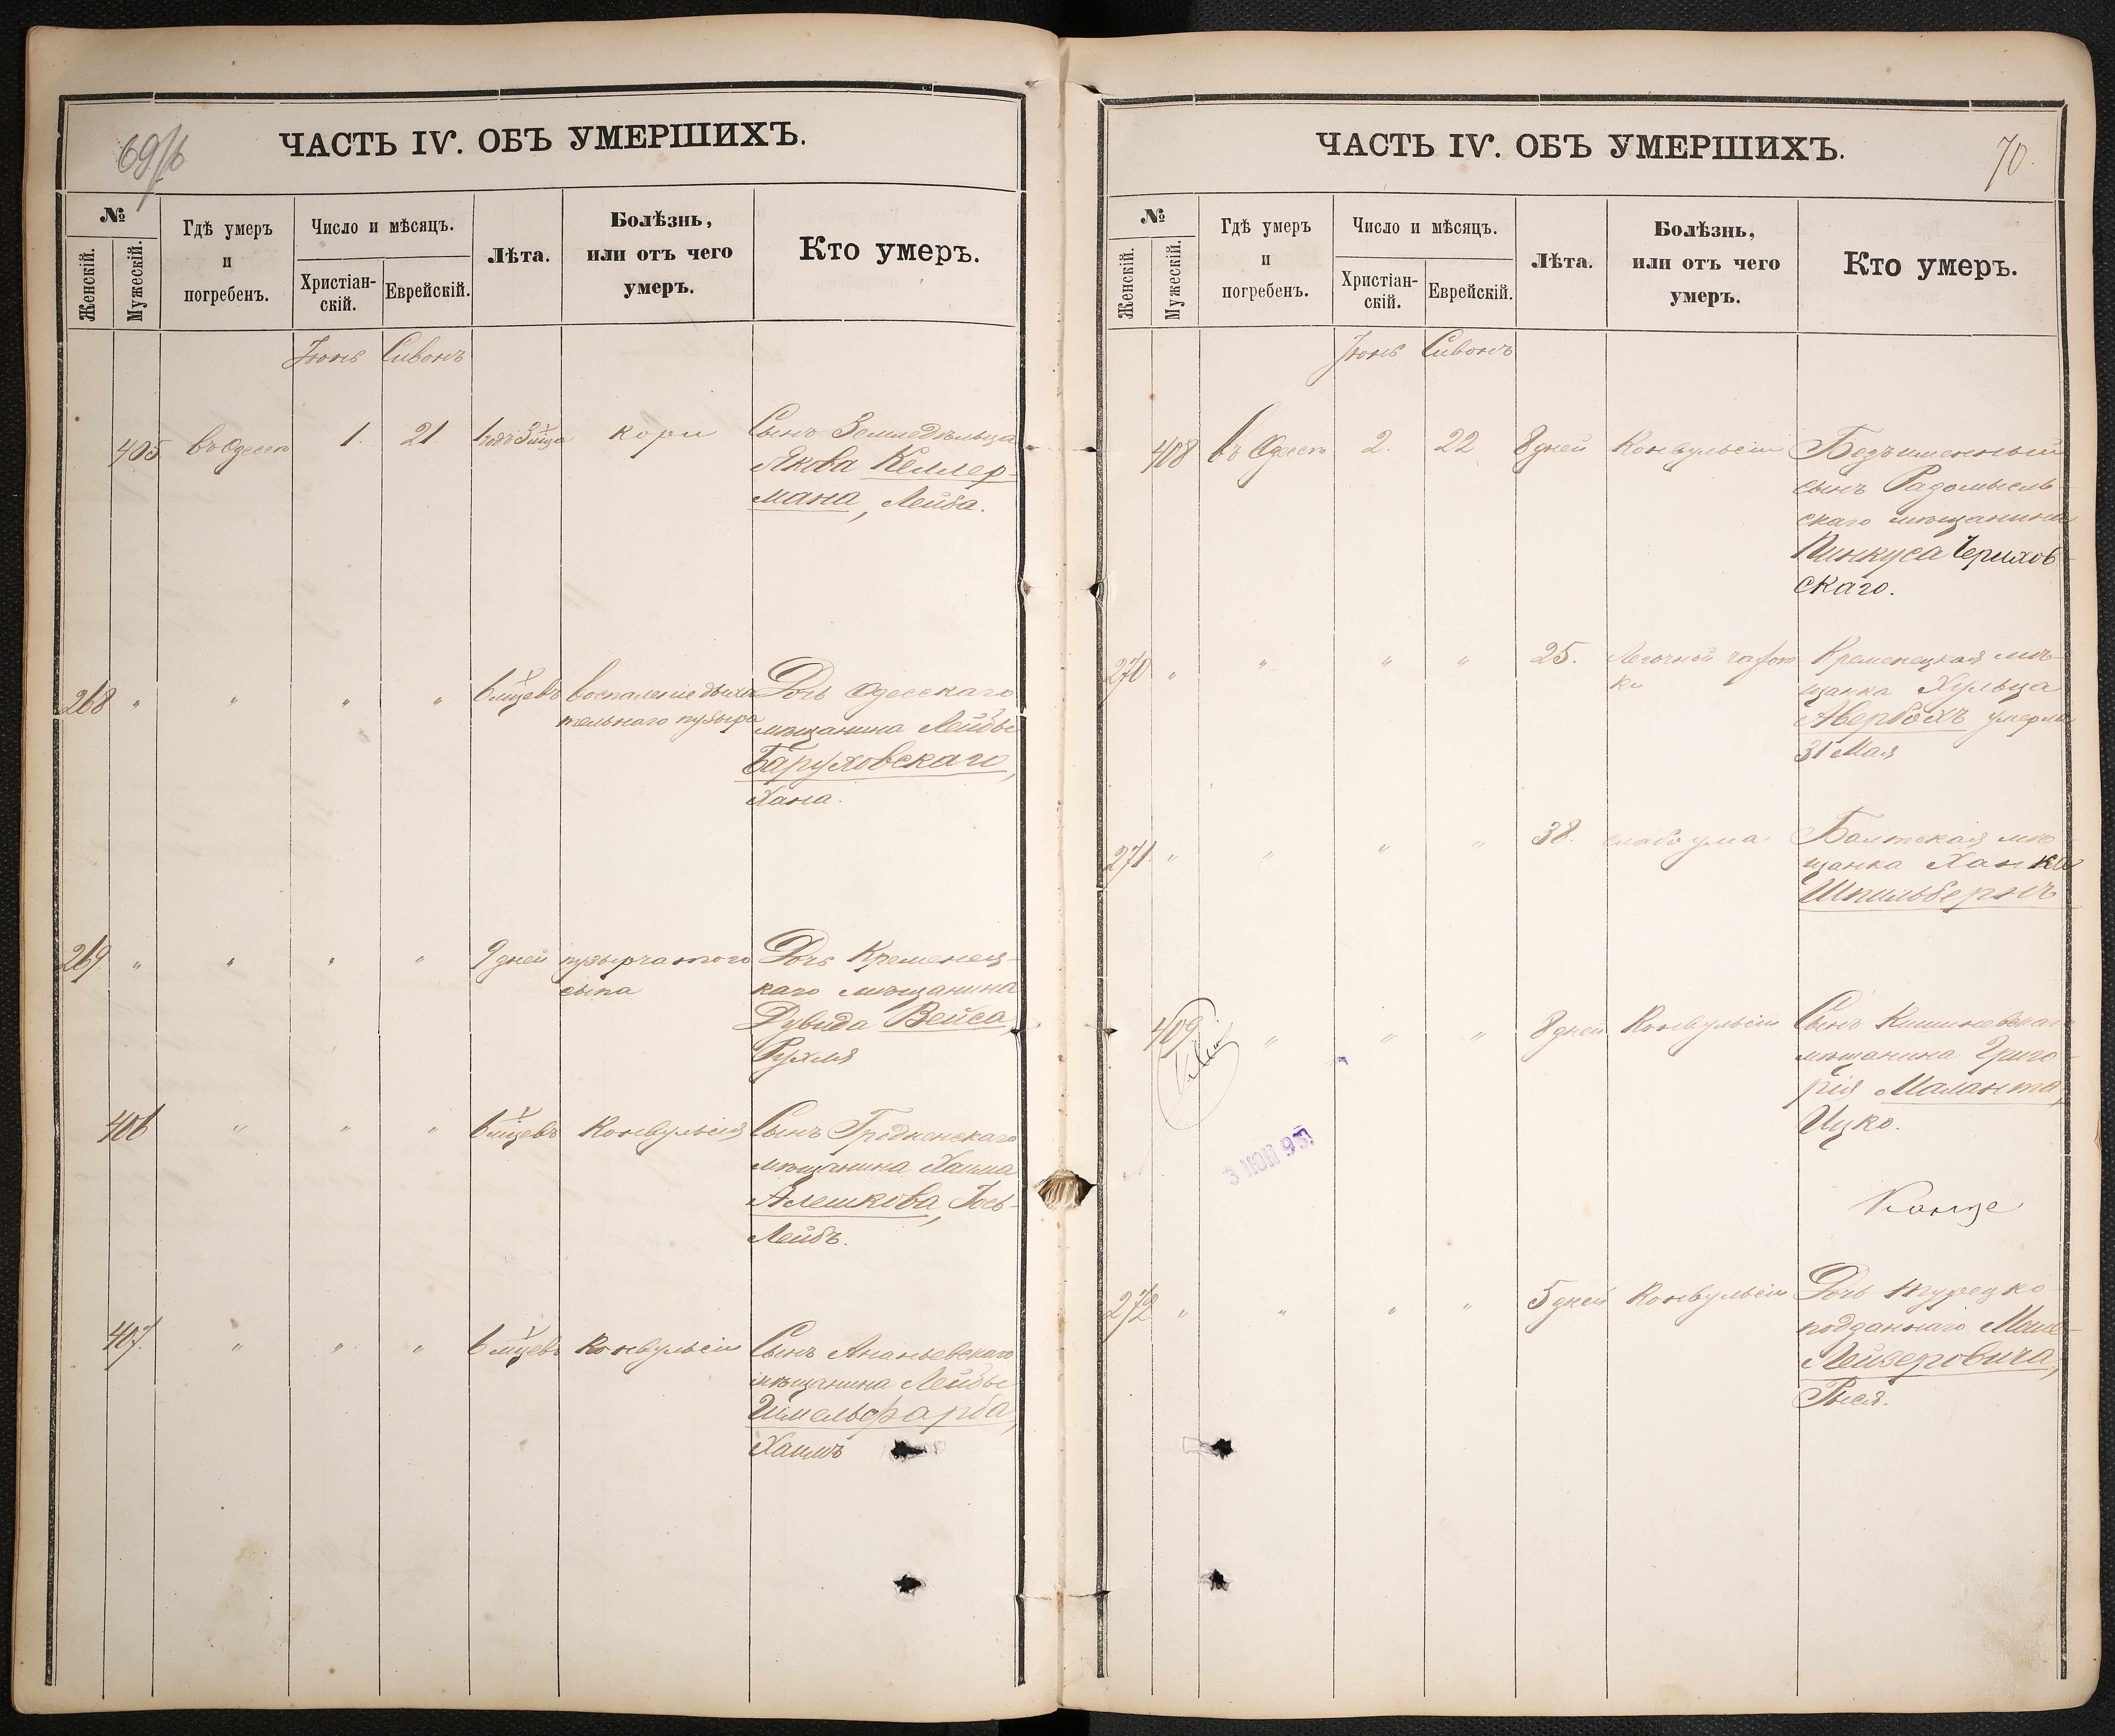 69/б
ЧАСТЬ IV. ОБЪ УМЕРШИХЪ.
№
Женскій.
Мужескій.
Гдѣ умеръ
и
погребенъ.
Число и мѣсяцъ.
Христіан-
скій.
Еврейскій.
Лѣта.
Болѣзнь,
или отъ чего
умеръ.
Кто умеръ.
Іюнь Сивонъ
405 въ Одессѣ 1. 21 1 годъ 3 мца кори Сынъ Земледѣльца
Якова Келлер-
мана, Лейба.
268 " " " " 6 мцевъ воспаленіе дыха Дочь Одесскаго
тельнаго пузыря мѣщанина Лейбы
Баруховскаго,
Хана.
269. " " " " 9 дней пузырчатого Дочь Кременец-
сыпа каго мѣщанина
Дувида Вейса,
Рухля
406 " " " 6 мцевъ Конвульсія Сынъ Гродненскаго
мѣщанина Хаима
Алешкова, Іось-
Лейбъ.
407. " " " 6 мцевъ Конвульсіи Сынъ Ананьевскаго
мѣщанина Лейбы
Шмельфарба,
Хаимъ
ЧАСТЬ IV. ОБЪ УМЕРШИХЪ.
70.
№
Женскій.
Мужескій.
Гдѣ умеръ
и
погребенъ.
Число и мѣсяцъ.
Христіан-
скій.
Еврейскій.
Лѣта.
Болѣзнь,
или отъ чего
умеръ.
Кто умеръ.
Іюнь Сивонъ
408 въ Одессѣ 2. 22 8 дней Конвульсіи Безъименный
сынъ Радомысль-
скаго мѣщанина
Пинкуса Черихов-
скаго.
270 " " " " 25. Легочной чахот- Кременецкая мѣ-
ки щанка Хульца
Авербохъ умерла
31 Мая
271. " " " " 38. слабоума Балтская мѣ-
щанка Ханка
Шпильбернъ
409 " " " 8 дней Конвульсіи Сынъ Кишиневскаго
мѣщанина Григо-
рія Маланта,
Ицко.
3 ИЮН 93
272 " " " " 5 дней Конвульсіи Дочь турецко-
подданнаго Моше-
Лейзеровича,
Рися.